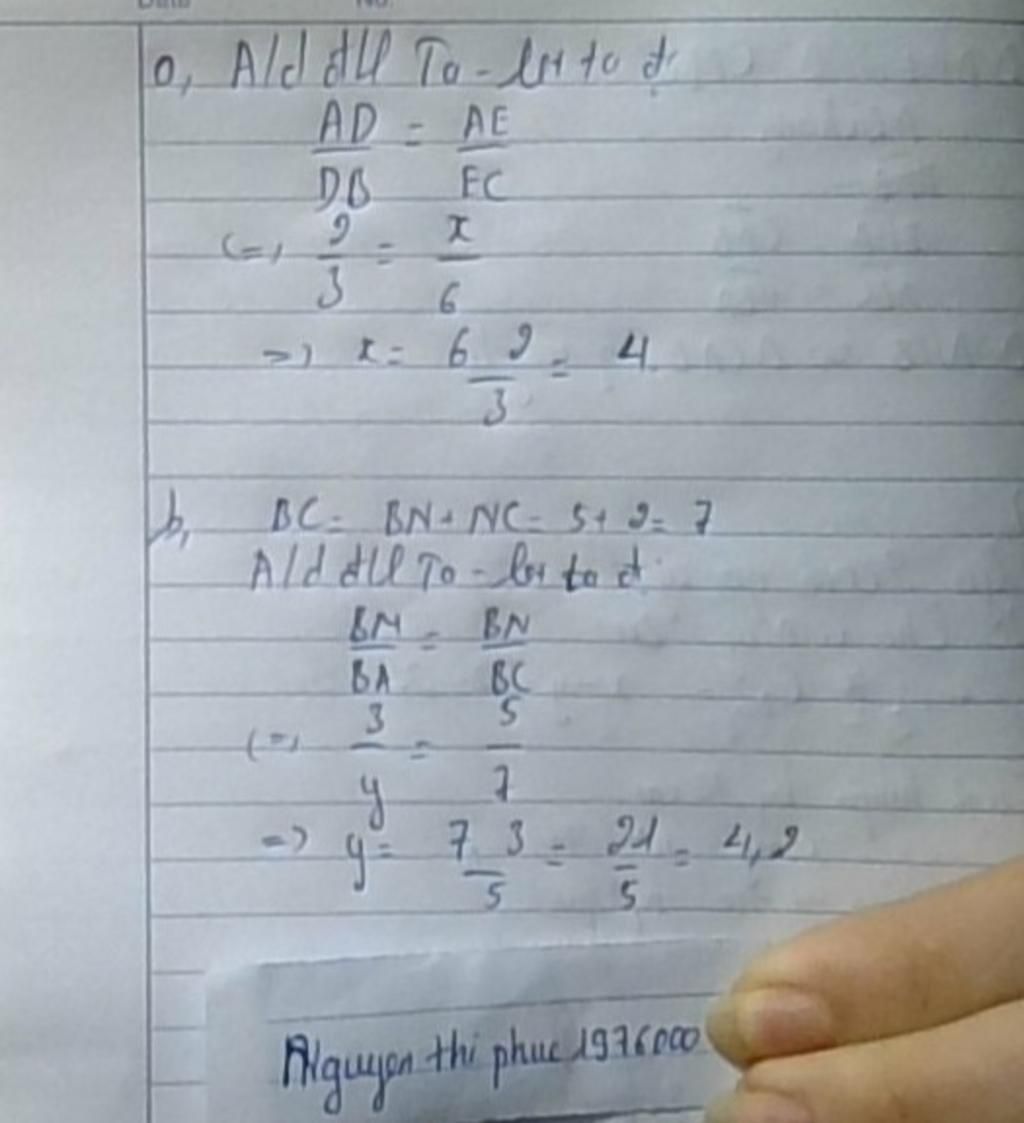 a, A/d đ/l Ta-lét ta đ:
AD/DB = AE/EC
<=> 2/3 = x/6
=> x = 6.2/3 = 4
b, BC = BN + NC = 5 + 2 = 7
A/d đ/l Ta-lét ta đ:
BM/BA = BN/BC
<=> 3/y = 5/7
=> y = 7.3/5 = 21/5 = 4,2
Nguyen thi phuc 1976000